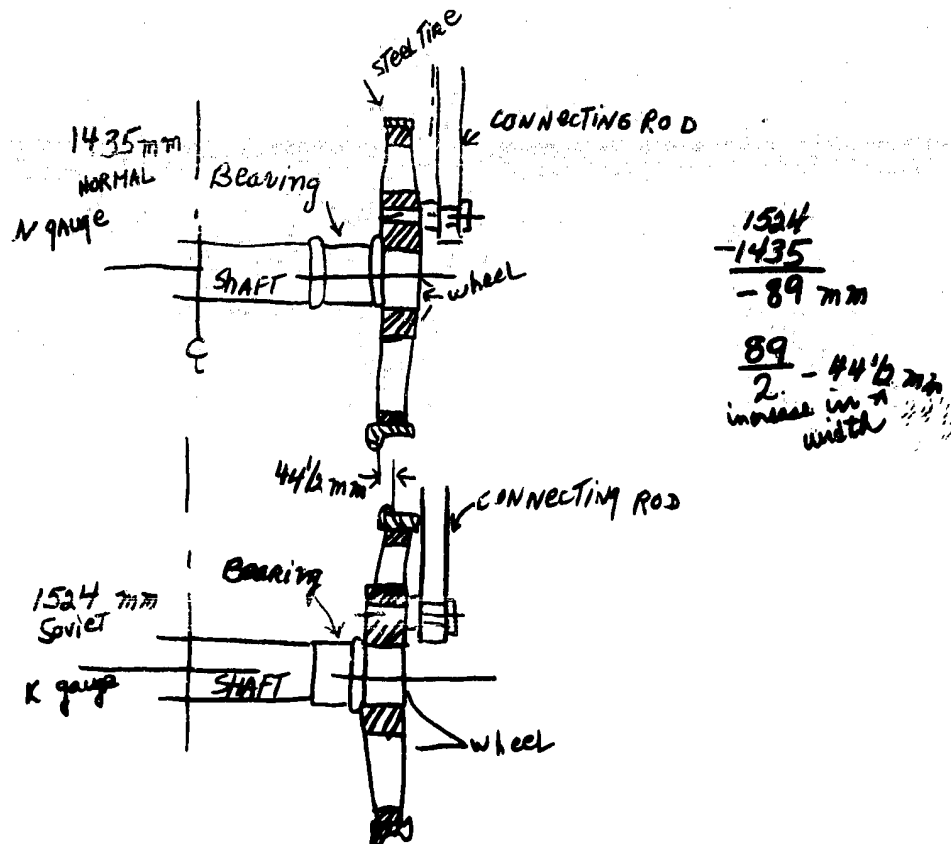 Steel Tire
CONNECTING ROD
1435 mm
NORMAL
N gauge
Bearing
SHAFT
wheel
℄
1524
-1435
- 89 mm
89
2. - 44 1/2 mm
increase in
width
44 1/2 mm
CONNECTING ROD
Bearing
1524 mm
Soviet
K gauge
SHAFT
wheel